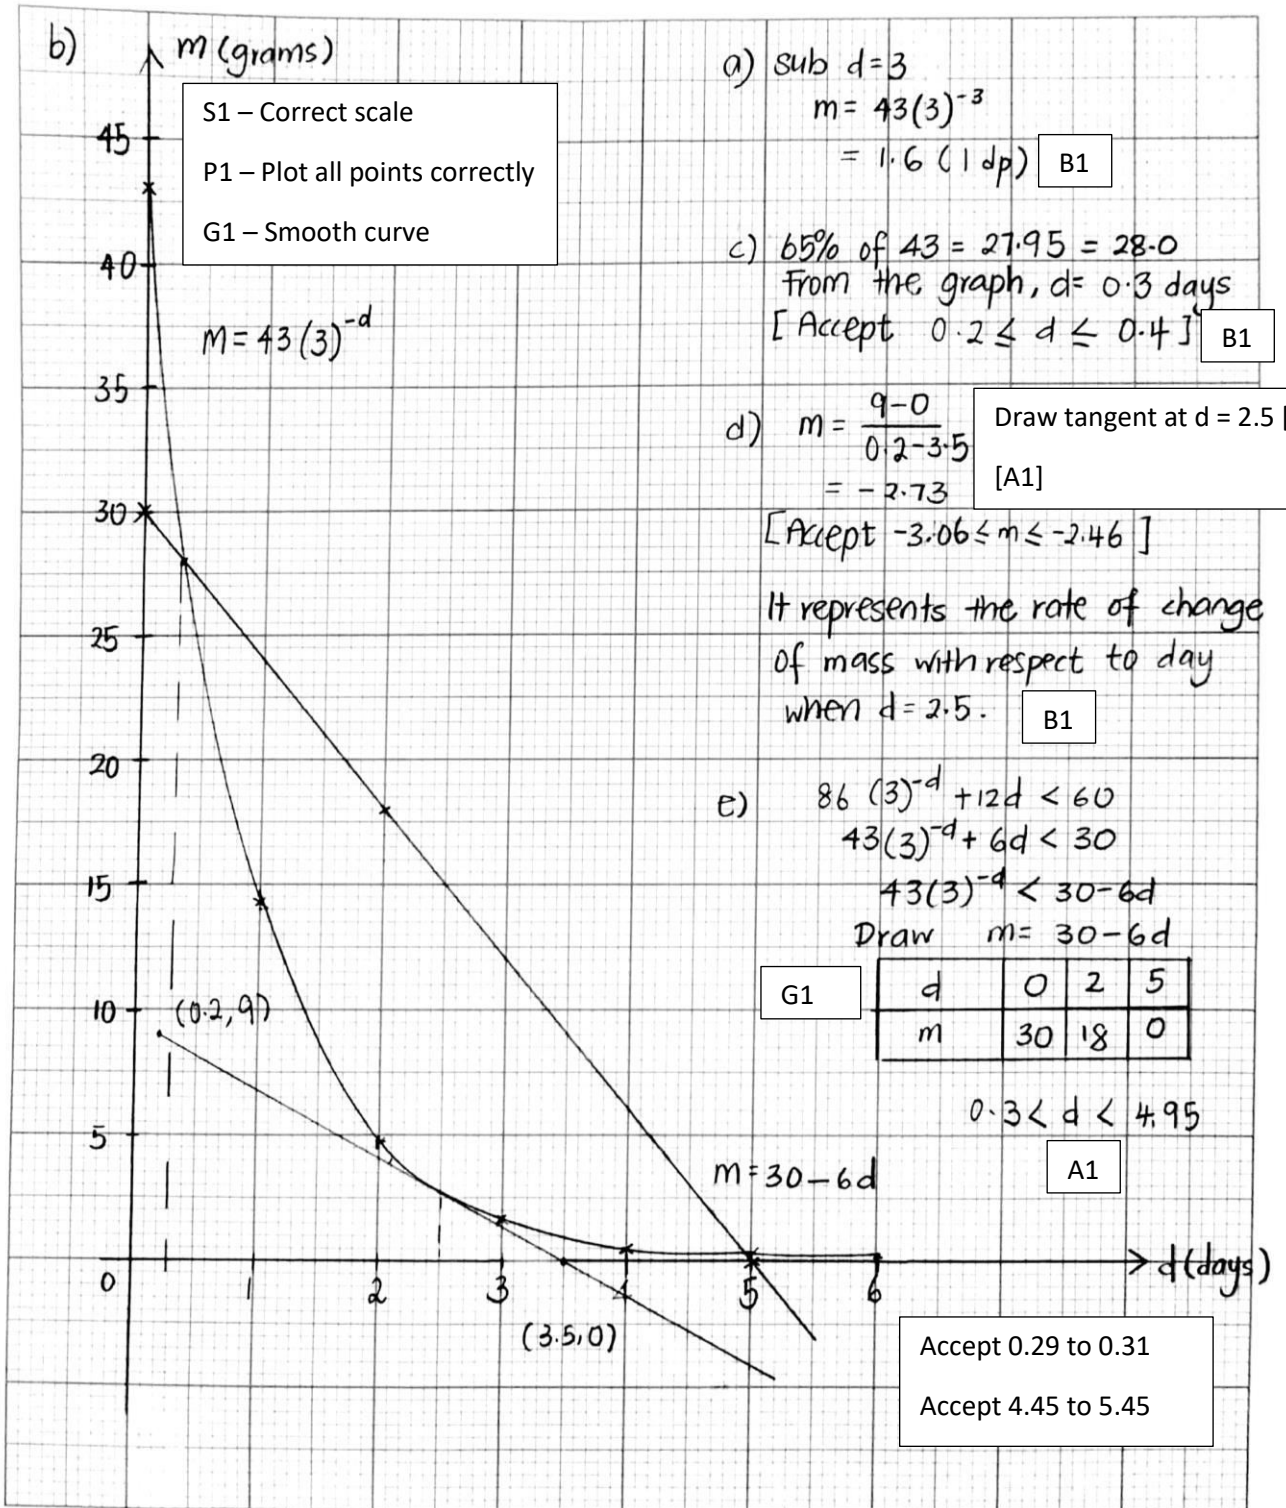 b)
m (grams)
S1 – Correct scale
P1 – Plot all points correctly
G1 – Smooth curve
45
40
35
30
25
20
15
10
5
0
1
2
3
4
5
6
d (days)
m = 43 (3)^-d
(0.2, 9)
(3.5, 0)
m = 30 – 6d
a) sub d = 3
m = 43(3)^-3
= 1.6 (1 dp)
B1
c) 65% of 43 = 27.95 = 28.0
From the graph, d = 0.3 days
[Accept 0.2 ≤ d ≤ 0.4]
B1
d) m = 9-0 / 0.2-3.5
= -2.73
[Accept -3.06 ≤ m ≤ -2.46]
Draw tangent at d = 2.5 [
[A1]
It represents the rate of change
of mass with respect to day
when d = 2.5.
B1
e) 86 (3)^-d + 12d < 60
43(3)^-d + 6d < 30
43(3)^-d < 30-6d
Draw m = 30-6d
G1
d 0 2 5
m 30 18 0
0.3 < d < 4.95
A1
Accept 0.29 to 0.31
Accept 4.45 to 5.45